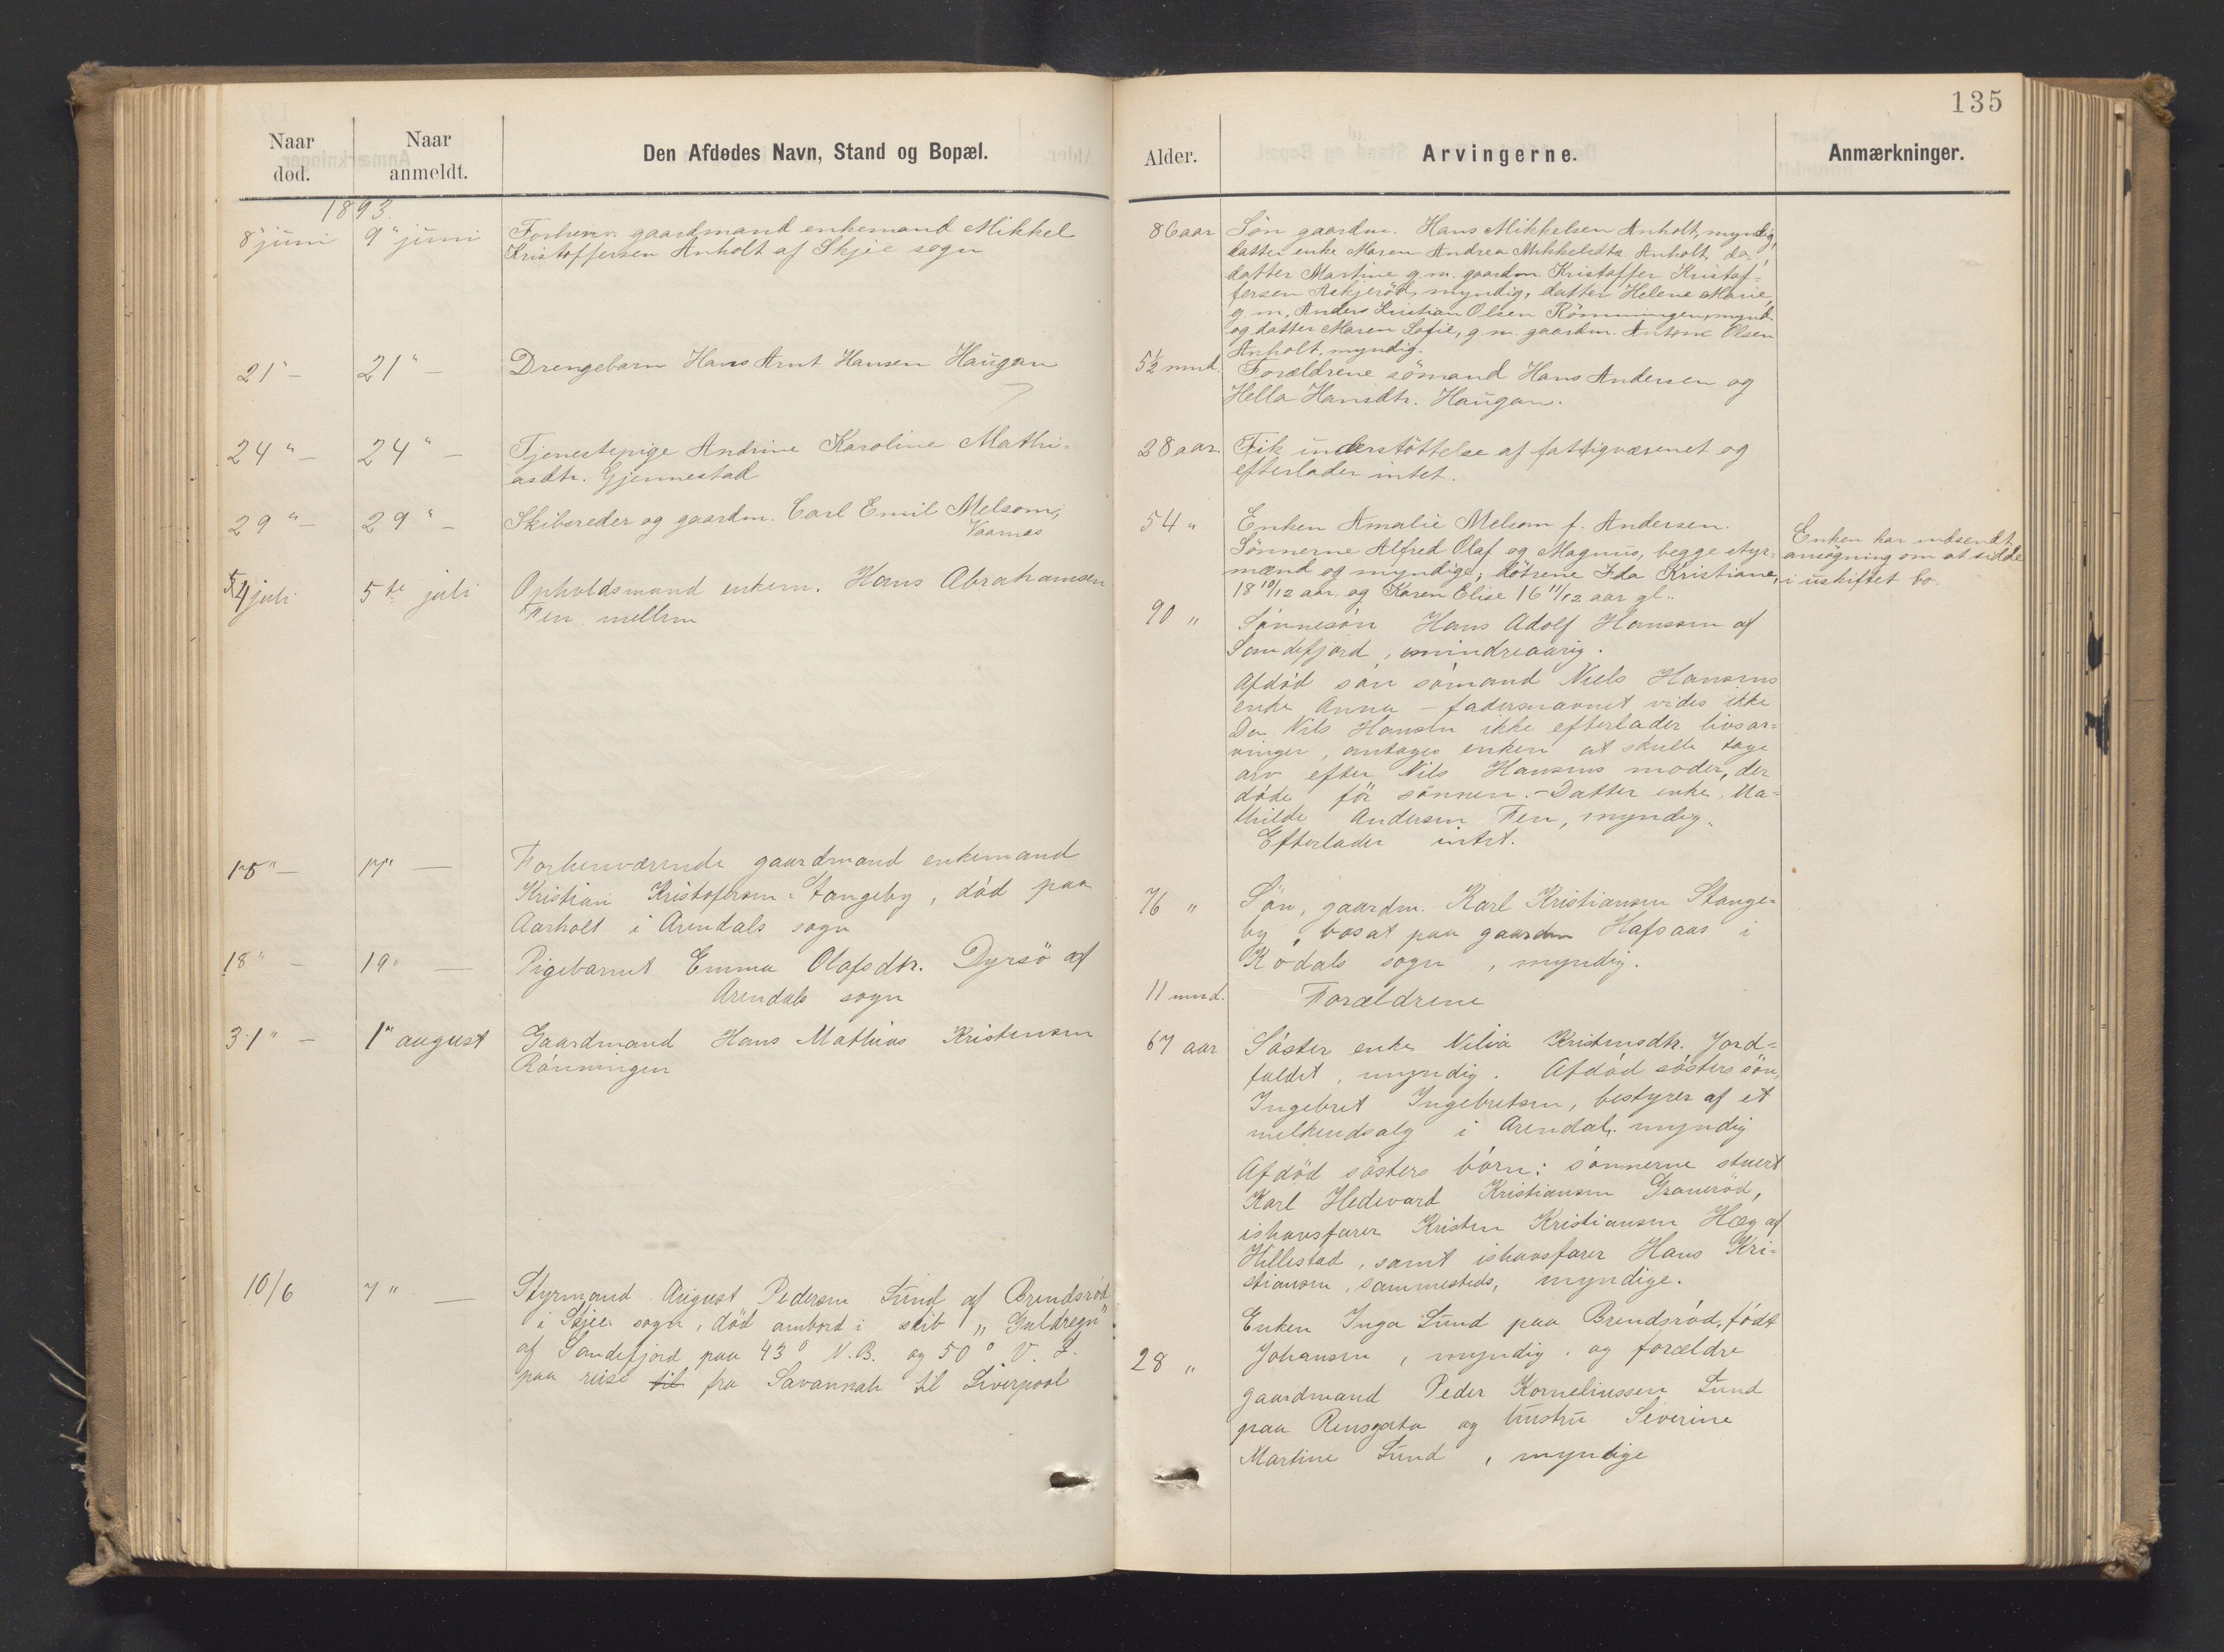 135
Naar død.
Naar anmeldt.
Den Afdødes Navn, Stand og Bopæl.
Alder.
Arvingerne.
Anmærkninger.
1893.
8" juni
9" juni
Forhenv. gaardmand enkemand Mikkel
Kristoffersen Anholt af Skjee sogn
86 aar
Søn gaardm. Hans Mikkelsen Anholt, myndig,
datter enke Maren Andrea Mikkelsdtr. Anholt, do,
datter Martine g. m. gaardm. Kristoffer Kristof=
fersen Askjerød, myndig, datter Helene Marie,
g. m. Anders Kristian Olsen Rønningen, mynd.
og datter Maren Sofie, g. m. gaardm. Anton Olsen
Anholt, myndig.
21" –
21" –
Drengebarn Hans Arnt Hansen Haugan
5½ mnd.
Forældrene sömand Hans Andersen og
Hella Hansdtr. Haugan.
24" –
24" –
Tjenestepige Andrine Karoline Mathi=
asdtr. Gjennestad
28 aar.
Fik understöttelse af fattigvæsenet og
efterlader intet.
29" –
29" –
Skibsreder og gaardm. Carl Emil Melsom,
Vaarnæs
54 "
Enken Amalie Melsom f. Andersen.
Sönnerne Alfred Olaf og Magnus, begge styr=
mænd og myndige, döttrene Ida Kristiane,
18 10/12 aar og Karen Elise 16 11/12 aar gl.
Enken har indsendt
ansøgning om at sidde
i uskiftet bo.
4 juli
5te juli
Opholdsmand enkem. Hans Abrahamsen
Fen mellem
90 "
Sönnesön Hans Adolf Hansen af
Sandefjord, mindreaarig.
Afdöd sön sömand Niels Hansens
enke Anna – fadersnavnet vides ikke
Da Nils Hansen ikke efterlader livsar=
vinger, antages enken at skulle tage
arv efter Nils Hansens moder, der
döde för sönnen. – Datter enke Ma=
thilde Andersen Fen, myndig.
Efterlader intet.
15" –
17" –
Forhenværende gaardmand enkemand
Kristian Kristofersen Stangeby, död paa
Aarholt i Arendals sogn
76 "
Sön, gaardm. Karl Kristiansen Stange=
by, bosat paa gaarden Hafsaas i
Kodals sogn, myndig.
18" –
19" –
Pigebarnet Emma Olafsdtr. Dyrsö af
Arendals sogn
11 mnd.
Forældrene
31" –
1" august
Gaardmand Hans Mathias Kristensen
Rönningen
67 aar
Söster enke Nilia Kristensdtr. Jord=
faldet, myndig. Afdöd sösters sön,
Ingebret Ingebretsen, bestyrer af et
melkeudsalg i Arendal, myndig
Afdöd sösters börn: sönnerne stuert
Karl Hedevard Kristiansen Graneröd,
ishavsfarer Kristen Kristiansen Hæg af
Hillestad, samt ishavsfarer Hans Kri=
stiansen, sammesteds, myndige.
10/6
7" –
Styrmand August Pedersen Lund af Brendsröd
i Skjee sogn, död ombord i skib "Guldregn"
af Sandefjord paa 43° N.B. og 50° V. L.
paa reise til fra Savannah til Liverpool
28 "
Enken Inga Lund paa Brendsröd, födt
Johansen, myndig, og forældre
gaardmand Peder Korneliussen Lund
paa Rensgata og hustru Severine
Martine Lund, myndige